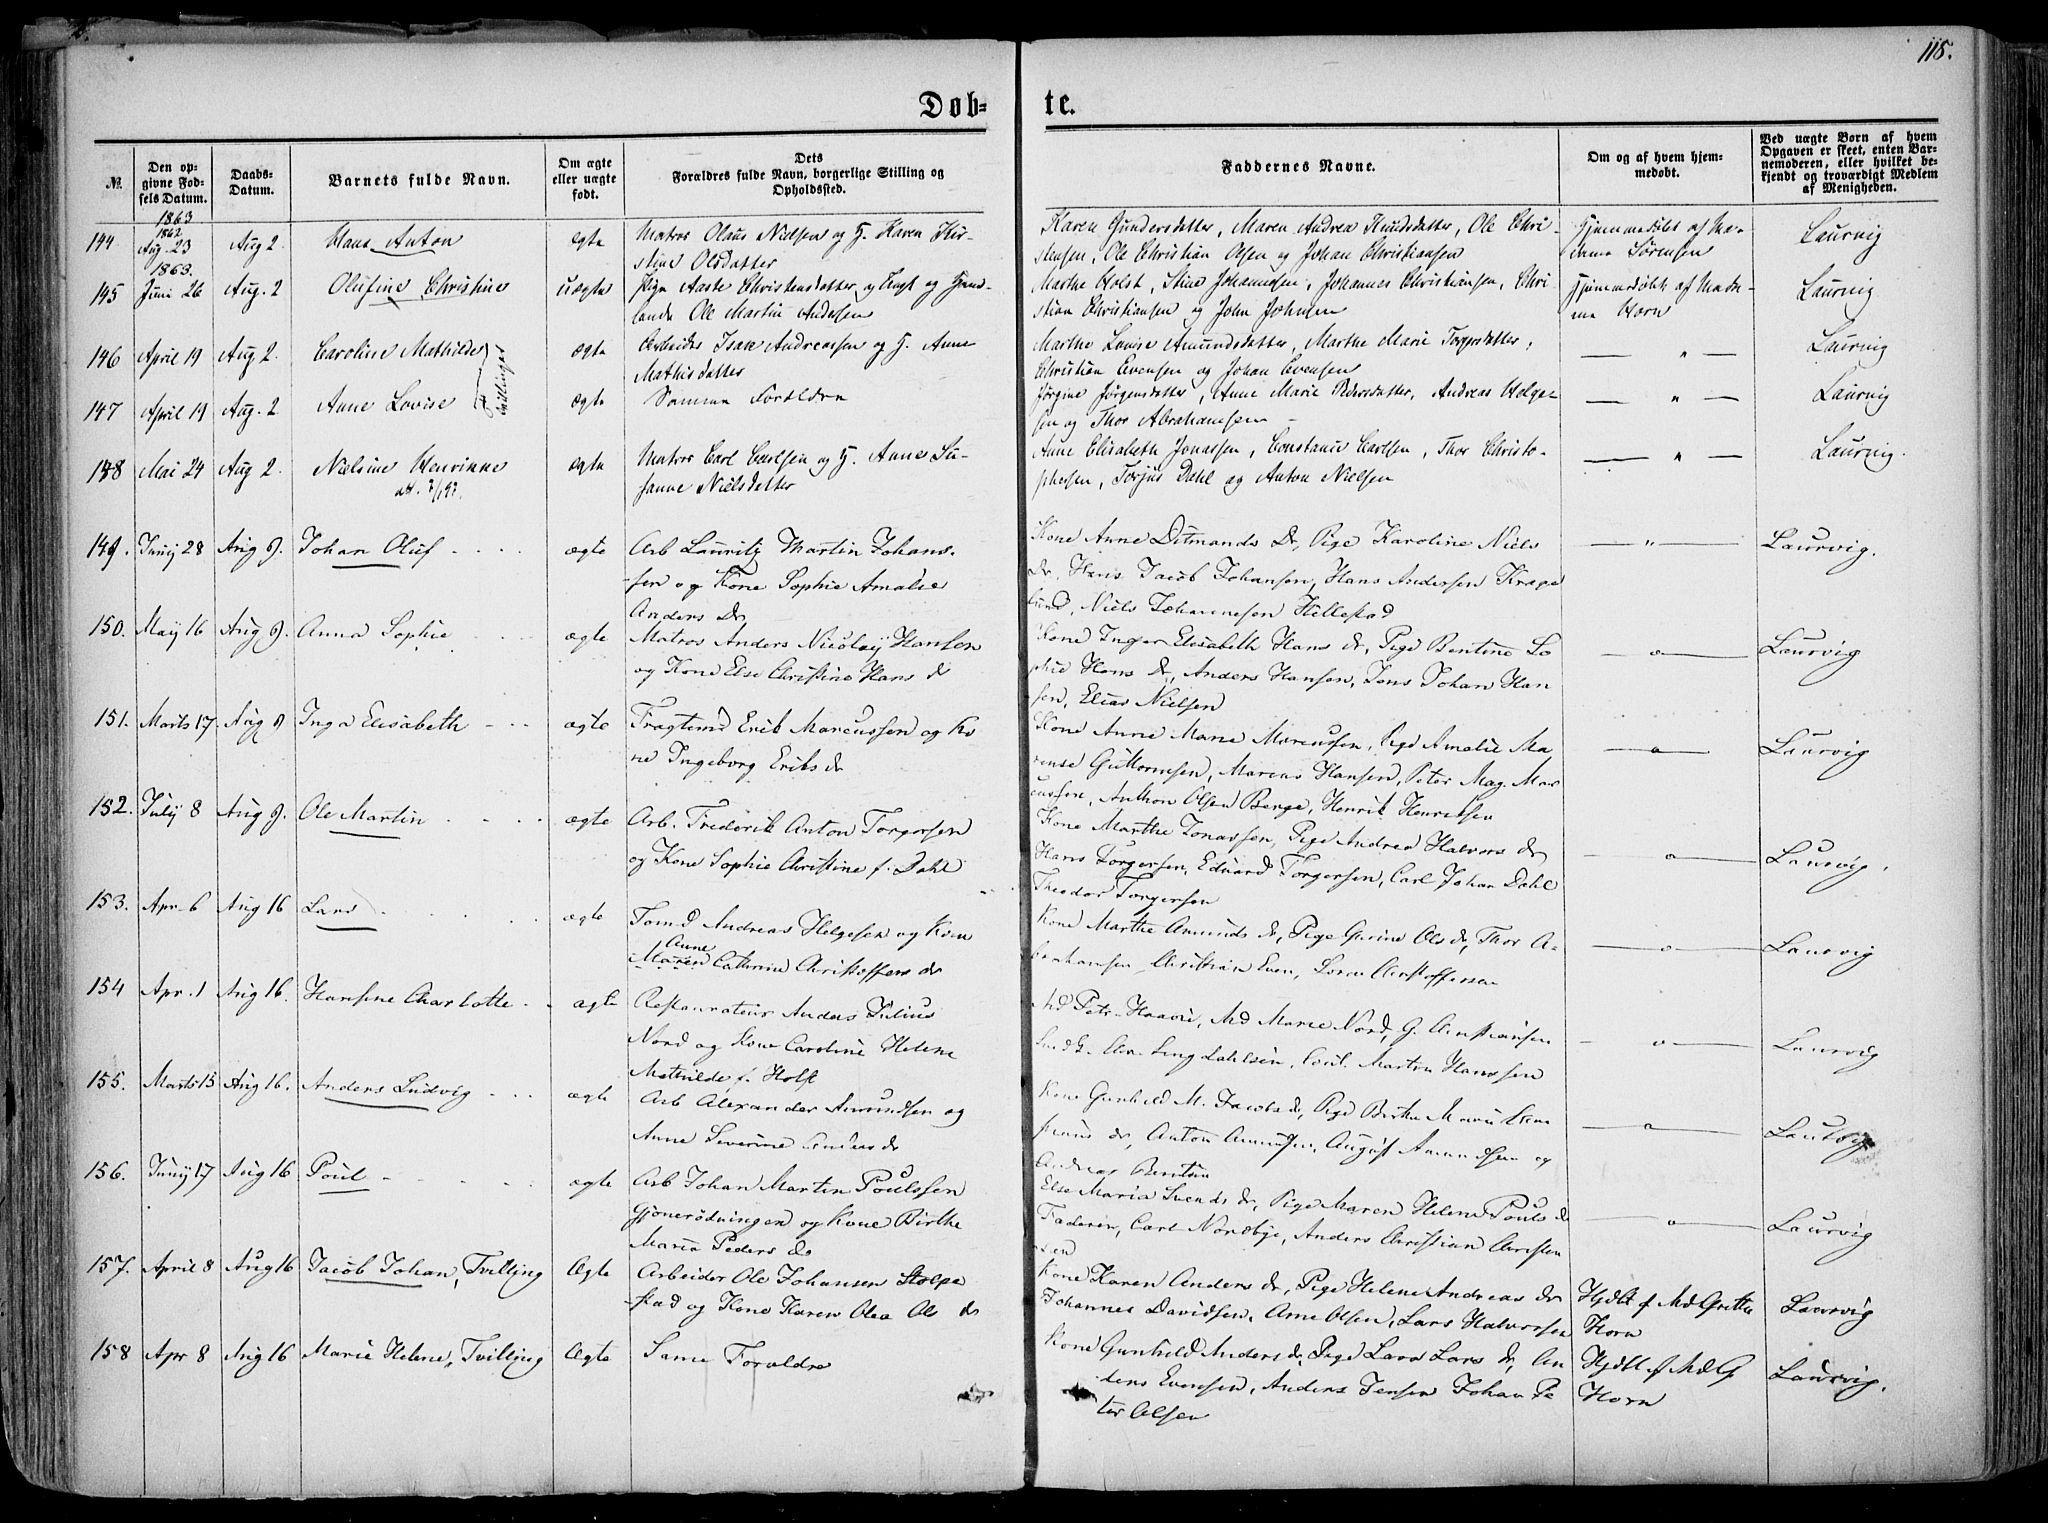 115.
Døb=
te.
№.
Den op=
givne Fød=
sels Datum.
Daabs=
Datum.
Barnets fulde Navn.
Om ægte
eller uægte
født.
Dets
Forældres fulde Navn, borgerlige Stilling og
Opholdssted.
Faddernes Navne.
Om og af hvem hjem=
medøbt.
Ved uægte Børn af hvem
Opgaven er skeet, enten Bar=
nemoderen, eller hvilket be=
kjendt og troværdigt Medlem
af Menigheden.
1863
1862
144 Aug. 23 Aug 2 Hans Anton ægte Matros Olaus Nielsen og H. Karen Kir-
stine Olsdatter
Karen Gundersdatter, Maren Andrea Knudsdatter, Ole Chri-
stensen, Ole Christian Olsen og Johan Christiansen
Hjemmedøbt af Ma-
dame Sørensen
Laurvig
1863.
145 Juni 26 Aug. 2 Olufine Christine uægte Pige Aaste Christensdatter og
Ole Martin Andersen
Marthe Holst, Stine Johannesen, Johannes Christiansen, Chri-
stian Christiansen og John Johnsen
Hjemmedøbt af Mada-
me Horn
Laurvig
146 April 19 Aug. 2. Caroline Mathilde ægte Arbeider Isak Andreassen og H. Anne
Mathisdatter
Tvillinger
Marthe Lovise Amundsdatter, Marthe Marie Torgersdatter,
Christian Evensen og Johan Evensen
— " — Laurvig
147 April 19 Aug. 2 Anne Lovise ægte Samme Forældre
Jørgine Jørgensdatter, Anne Marie Pedersdatter, Andreas Helge-
sen og Thor Abrahamsen
— " — Laurvig
148 Mai 24 Aug 2. Nielsine Henrikke ægte Matros Carl Carlsen og H. Anne Su-
sanne Nielsdatter
Anne Elisabeth Jonassen, Constance Carlsen, Thor Christo-
phersen, Torjus Dahl og Anton Nielsen
— " — Laurvig.
149. Junij 28 Aug 9. Johan Oluf ægte Arb Lauritz Martin Johans-
-sen og Kone Sophie Amalie
Anders Dr
Kone Anne Ditmands Dr, Pige Karoline Niels
Dr, Hans Jacob Johansen, Hans Andersen Krage
lund, Niels Johannesen Hillestad
— " — Laurvig.
150. Maij 16 Aug 9. Anna Sophie ægte Matros Anders Nicolaij Hansen
og Kone Else Christine Hans dr
Kone Inger Elisabeth Hans dr, Pige Bentine So
phie Hans Dr, Anders Hansen, Jens Johan Han
sen, Elias Nielsen
— o — Laurvig
151. Marts 17. Aug 9 Inga Elisabeth ægte Fragtemd Erik Marcussen og Ko
ne Ingeborg Eriks dr
Kone Anne Marie Marcussen, Pige Amalie Ma
rense Guttormsen, Marcus Hansen, Peter Mag. Mar
cussen, Anthon Olsen Berge, Henrik Henriksen
— o — Laurvig
152. Julij 8 Aug 9. Ole Martin ægte Arb. Frederik Anton Torgersen
og Kone Sophie Christine f. Dahl
Kone Marthe Jonassen, Pige Andrea Halvors dr
Hans Torgersen, Eduard Torgersen, Carl Johan Dahl
Theodor Torgersen
— o — Laurvig.
153. Apr. 6 Aug 16 Lars ægte Tomd Andreas Helgesen og Kone
Anne
Maren Cathrine Christoffers dr
Kone Marthe Amunds dr, Pige Gurine Ols dr, Thor A-
brahamsen Christian Even, Soren Christoffersen
— o — Laurvig
154 Apr. 1 Aug 16. Hansine Charlotte ægte Restaurateur Anders Julius
Nord og Kone Caroline Helene
Mathilde f. Holst
Md Petr. Haavie, Md Marie Nord, G. Christiansen
Martin Hanssen
— o — Laurvig
155. Marts 15 Aug 16. Anders Ludvig ægte Arb Alexander Amundsen og
Anne Severine Anders dr
Kone Gunhild M. Jacobs dr, Pige Birthe Marie
dr, Anton Amundsen, August Amundsen og
Andreas Berntsen
— o — Laurvig
156. Junij 17 Aug 16 Poul ægte Arb Johan Martin Poulssen
Gjonerødningen og Kone Birthe
Maria Peders dr
Else Maria Svends dr, Pige Maren Helene Pouls dr
Faderen, Carl Nordbye, Anders Christian Christen
sen
— o — Laurvig
157. April 8 Aug 16 Jacob Johan, Tvilling Ægte Arbeider Ole Johansen Stolpe
-stad og Kone Karen Olea Ols dr
Kone Karen Anders dr, Pige Helene Andreas dr
Johannes Davidsen, Arne Olsen, Lars Halvorssen
Hjdbt af Md Grethe
Horn
Laurvig
158 Apr 8 Aug 16 Marie Helene, Tvilling Ægte Same Forældre
Kone Gunhild Anders dr, Pige Lava Lars dr, An
ders Evensen, Anders Jensen Johan Pe
ter Olsen
Hjdbt af Md G
Horn
Laurvig.